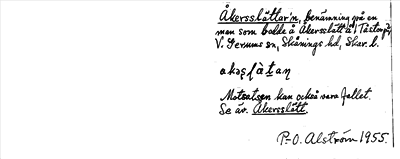 Åkersslättar'n, benämning på en
man som bodde å Åkersslätt å
V. Gerums sn, Skånings hd, Skar. l.
Motsatsen kan också vara fallet.
Se äv. Åkersslätt.
P-O. Alström 1955.